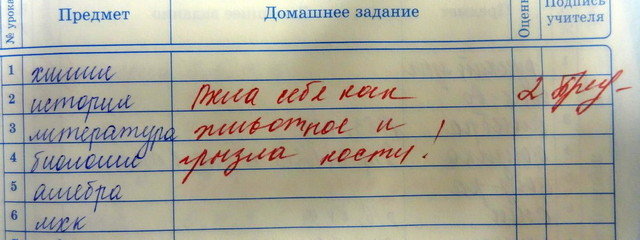 № урока Предмет Домашнее задание Оценка Подпись учителя
1 химия
2 история Вела себя как 2
3 литература животное и
4 биология грызла кости!
5 алгебра
6 мхк